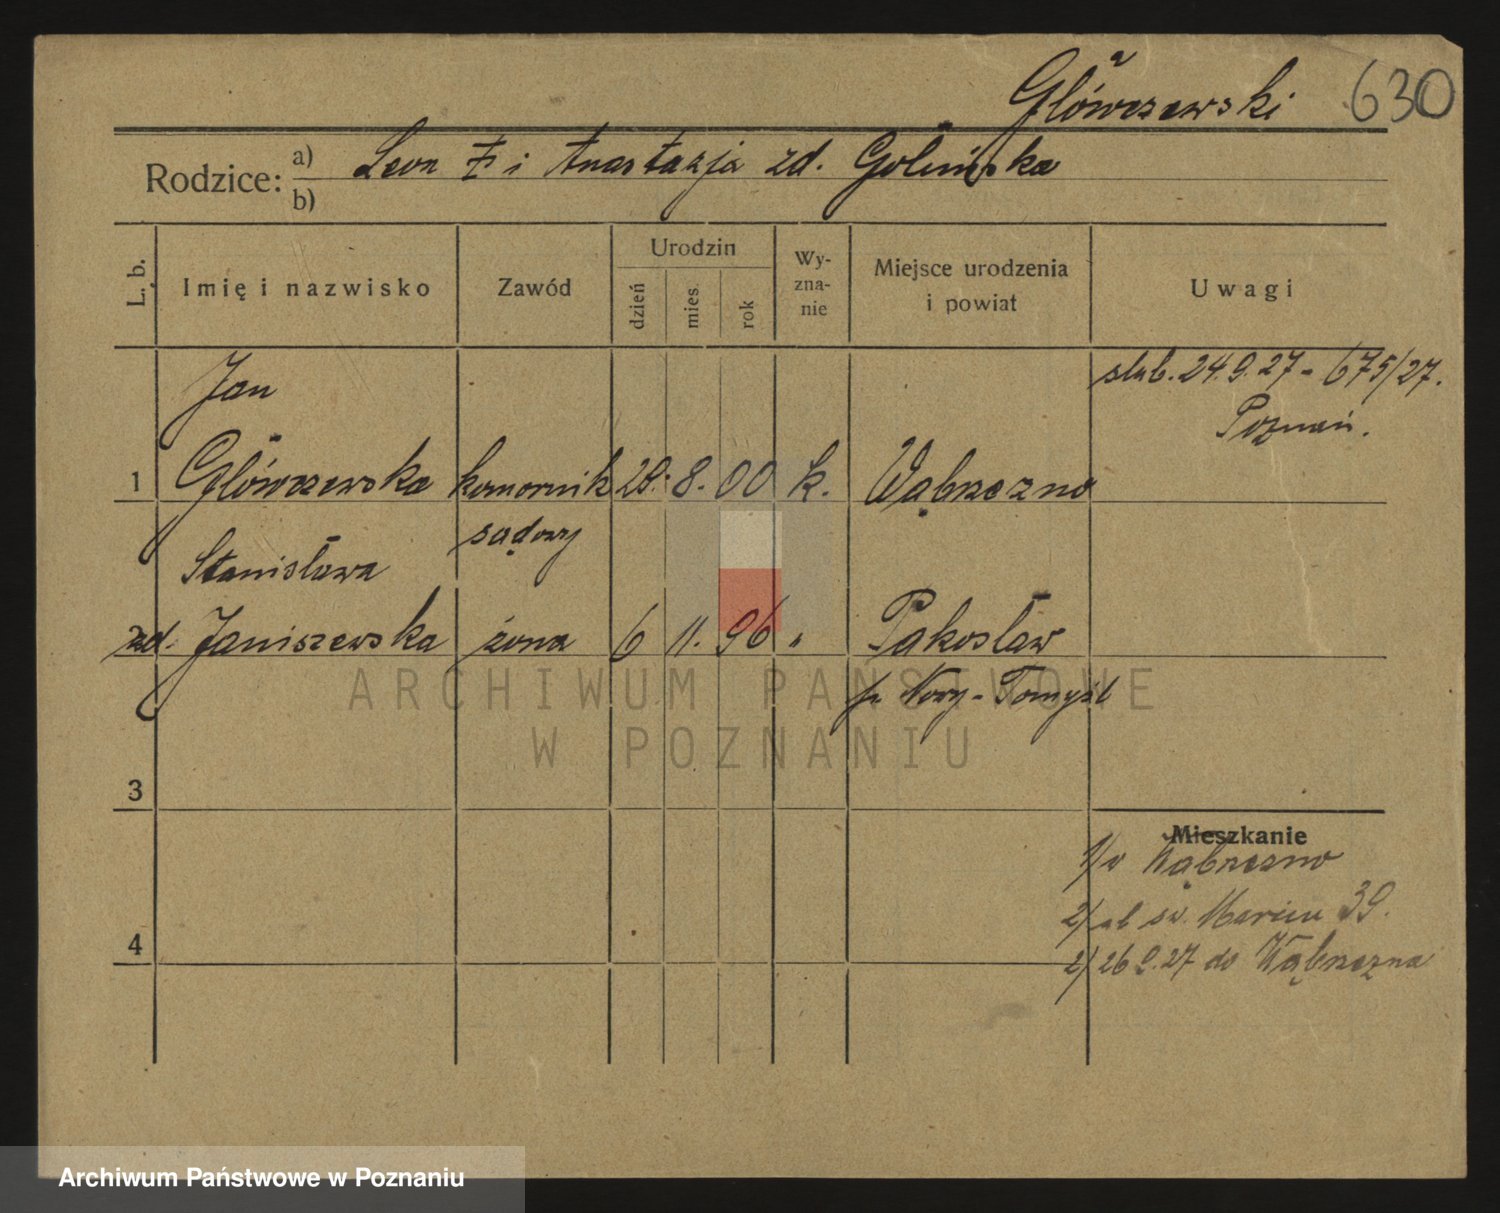 Główczewski 630
Rodzice: a) Leon † i Anastazja zd. Golińska
b)
L. b.
Imię i nazwisko
Zawód
Urodzin
dzień
mies.
rok
Wy-
zna-
nie
Miejsce urodzenia
i powiat
Uwagi
Jan
ślub. 24.9.27 - 675/27.
Poznań.
1 Główczewski komornik 28. 8. 00 k. Wąbrzezno
sądowy
Stanisława
2 zd. Janiszewska żona 6 11. 96 " Pakosław
p. Nowy-Tomyśl
3
Mieszkanie
1/ w Wąbrzezno
2/ ul św. Marcin 39.
4
2/ 26 9.27 do Wąbrzezna
ARCHIWUM PAŃSTWOWE
W POZNANIU
Archiwum Państwowe w Poznaniu